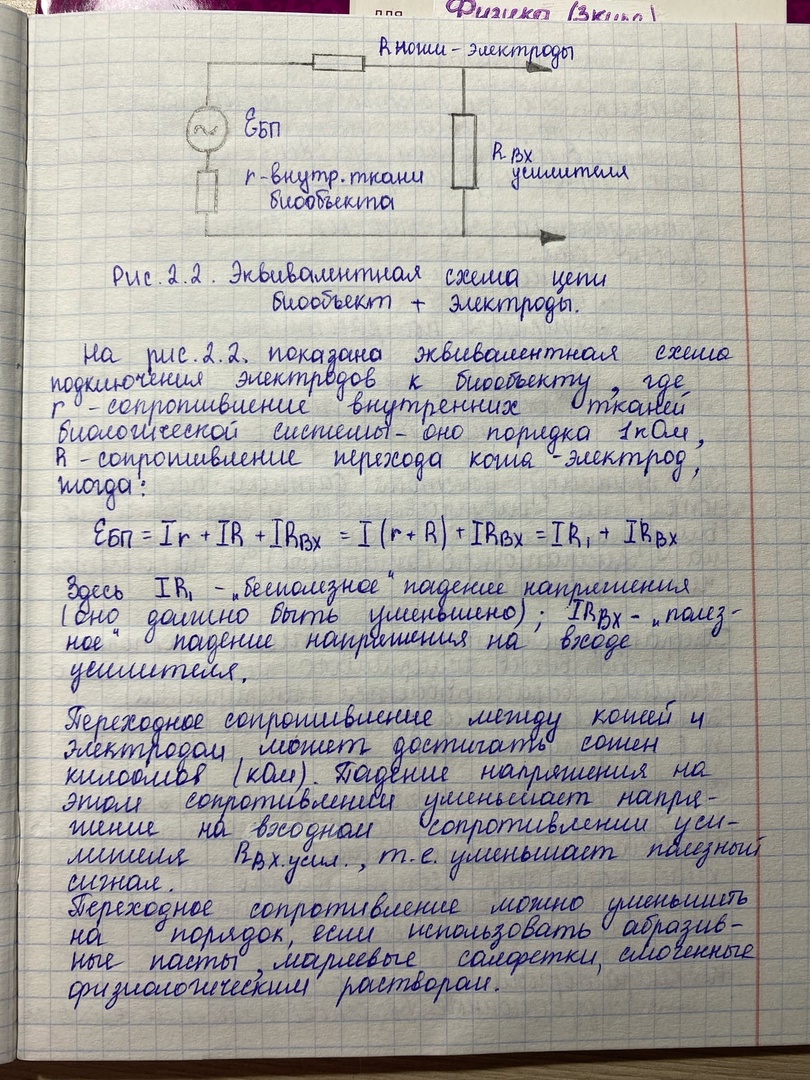 для
Физика (3 курс)
R кожи-электроды
ƐБП
r-внутр. ткани
биообъекта
R вх
усилителя
Рис. 2.2. Эквивалентная схема цепи
биообъект + электроды.
На рис. 2.2. показана эквивалентная схема
подключения электродов к биообъекту, где
r - сопротивление внутренних тканей
биологической системы - оно порядка 1 кОм,
R - сопротивление перехода кожа - электрод,
тогда:
ƐБП = Ir + IR + IRвх = I (r + R) + IRвх = IR₁ + IRвх
Здесь IR₁ - „бесполезное" падение напряжения
(оно должно быть уменьшено); IRвх - „полез-
ное" падение напряжения на входе
усилителя.
Переходное сопротивление между кожей и
электродом может достигать сотен
килоомов (кОм). Падение напряжения на
этом сопротивлении уменьшает напря-
жение на входном сопротивлении уси-
лителя Rвх.усил., т.е. уменьшает полезный
сигнал.
Переходное сопротивление можно уменьшить
на порядок, если использовать абразив-
ные пасты, марлевые салфетки, смоченные
физиологическим раствором.